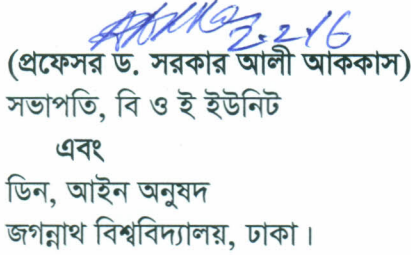 2.2.16
(প্রফেসর ড. সরকার আলী আককাস)
সভাপতি, বি ও ই ইউনিট
এবং
ডিন, আইন অনুষদ
জগন্নাথ বিশ্ববিদ্যালয়, ঢাকা।